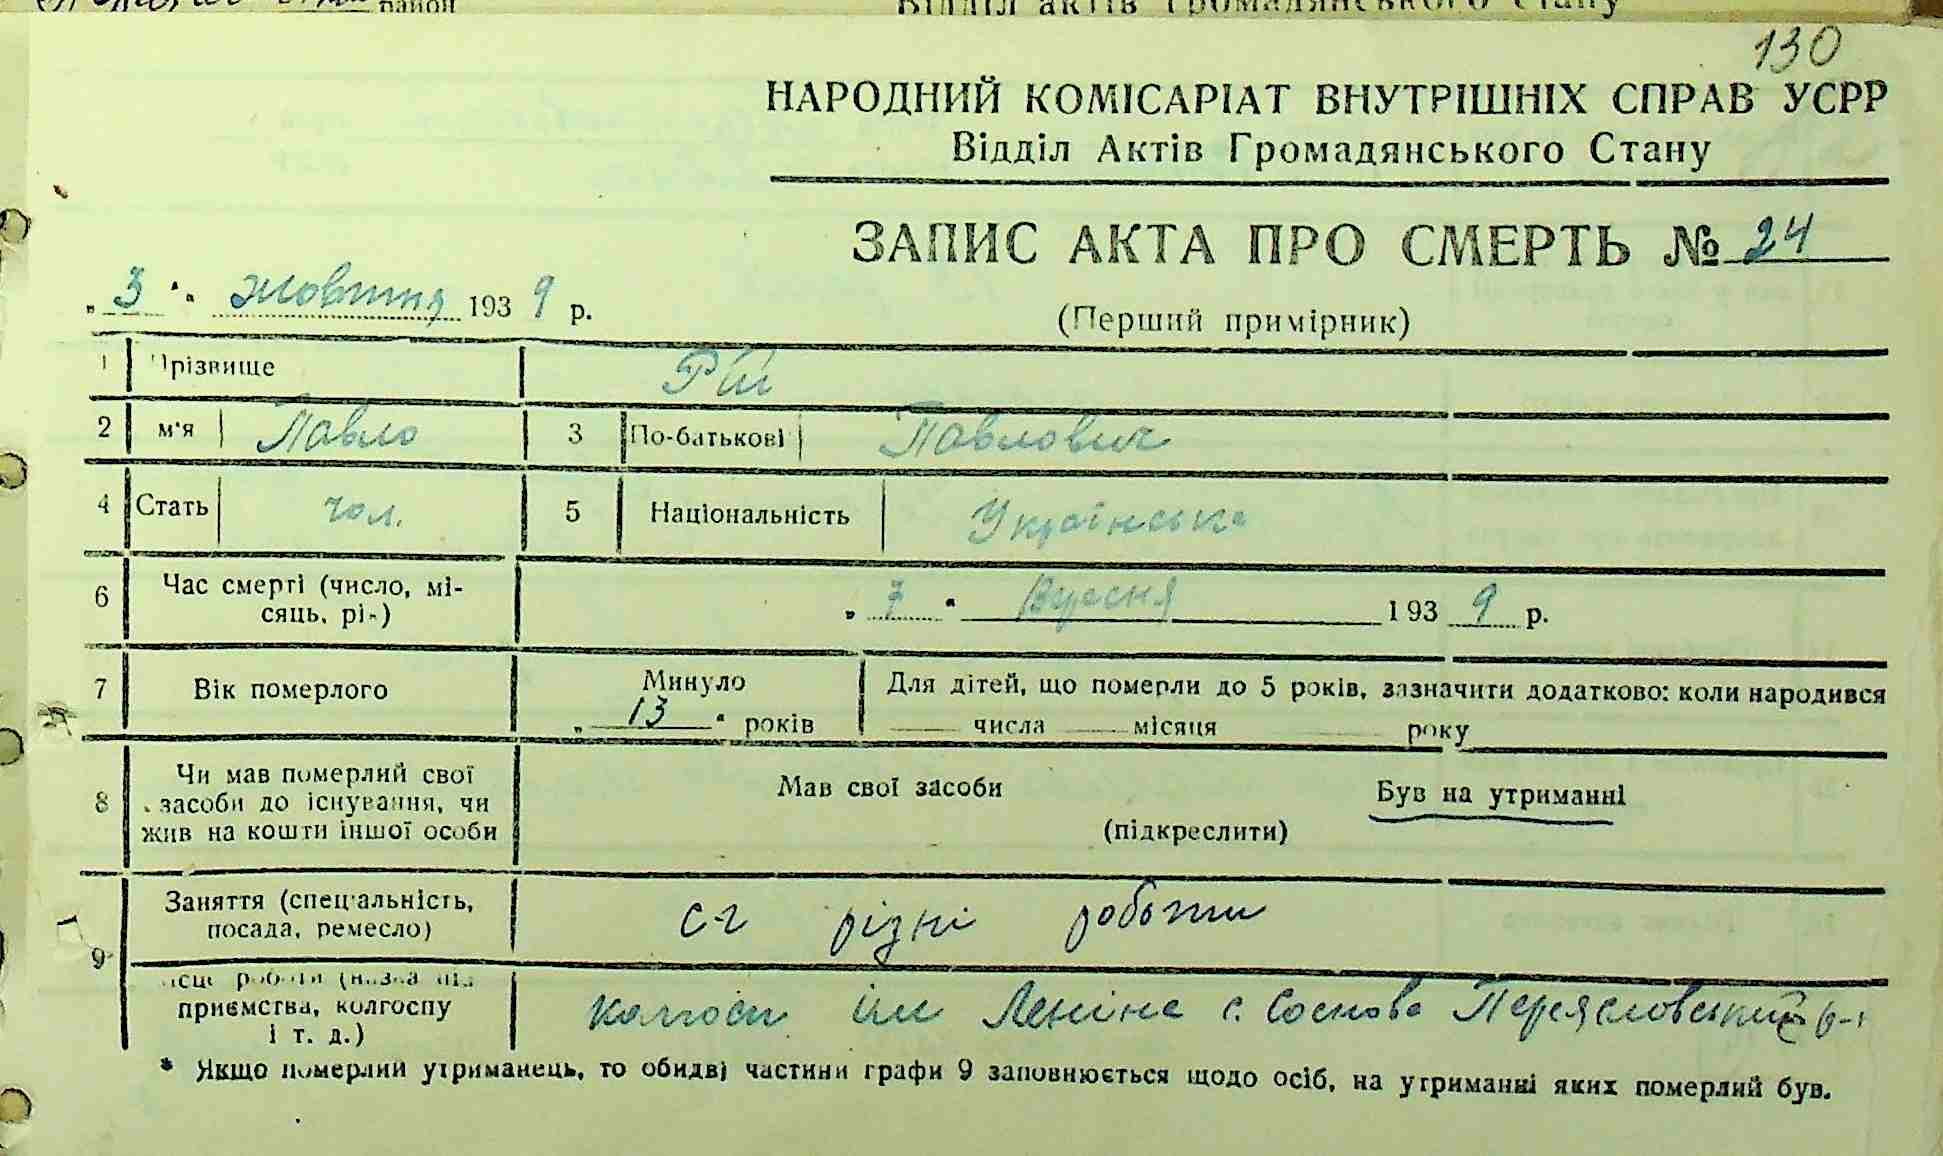 район
Відділ актів Громадянського Стану
130
НАРОДНИЙ КОМІСАРІАТ ВНУТРІШНІХ СПРАВ УСРР
Відділ Актів Громадянського Стану
ЗАПИС АКТА ПРО СМЕРТЬ № 24
„ 3 " жовтня 1939 р.
(Перший примірник)
1 Прізвище Рій
2 м'я Павло 3 По-батькові Павлович
4 Стать чол. 5 Національність Українська
6 Час смерті (число, мі-
сяць, рік) „ 7 " Вересня 1939 р.
7 Вік померлого Минуло Для дітей, що померли до 5 років, зазначити додатково: коли народився
„ 13 " років числа місяця року
8 Чи мав померлий свої
засоби до існування, чи
жив на кошти іншої особи
Мав свої засоби Був на утриманні
(підкреслити)
9 Заняття (спеціальність,
посада, ремесло) с-г різні роботи
місце роботи (назва під
приємства, колгоспу
і т. д.) колгосп ім Леніна с. Соснова Переясловський р-н
* Якщо померлий утриманець, то обидві частини графи 9 заповнюється щодо осіб, на утриманні яких померлий був.